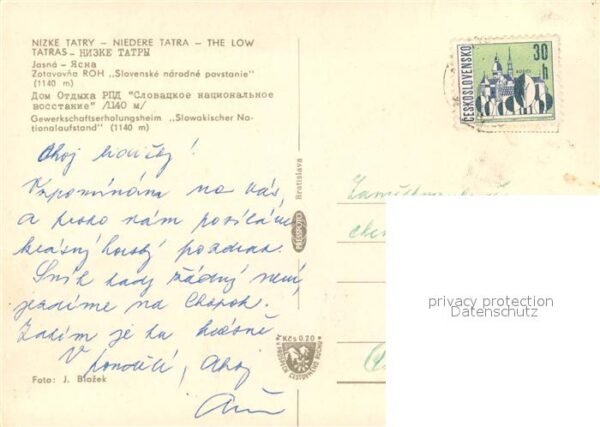 NIZKE TATRY — NIEDERE TATRA — THE LOW
TATRAS - НИЗКЕ ТАТРЫ
Jasná — Ясна
Zotavovňa ROH „Slovenské národné povstanie"
(1140 m)
Дом Отдыха РПД "Словацкое национальное
восстание" /1140 м/
Gewerkschaftserholungsheim „Slowakischer Na-
tionalaufstand" (1140 m)
Ahoj
Vzpomínám na vás,
a proto vám posílám
krásný horský pozdrav.
Sníh tady žádný není,
jezdíme na Chopok.
Zatím je tu krásně
V pondělí, Ahoj
Foto: J. Blažek
Bratislava
PRESSFOTO
Kčs 0.20
ČESKOSLOVENSKO
30 h
privacy protection
Datenschutz